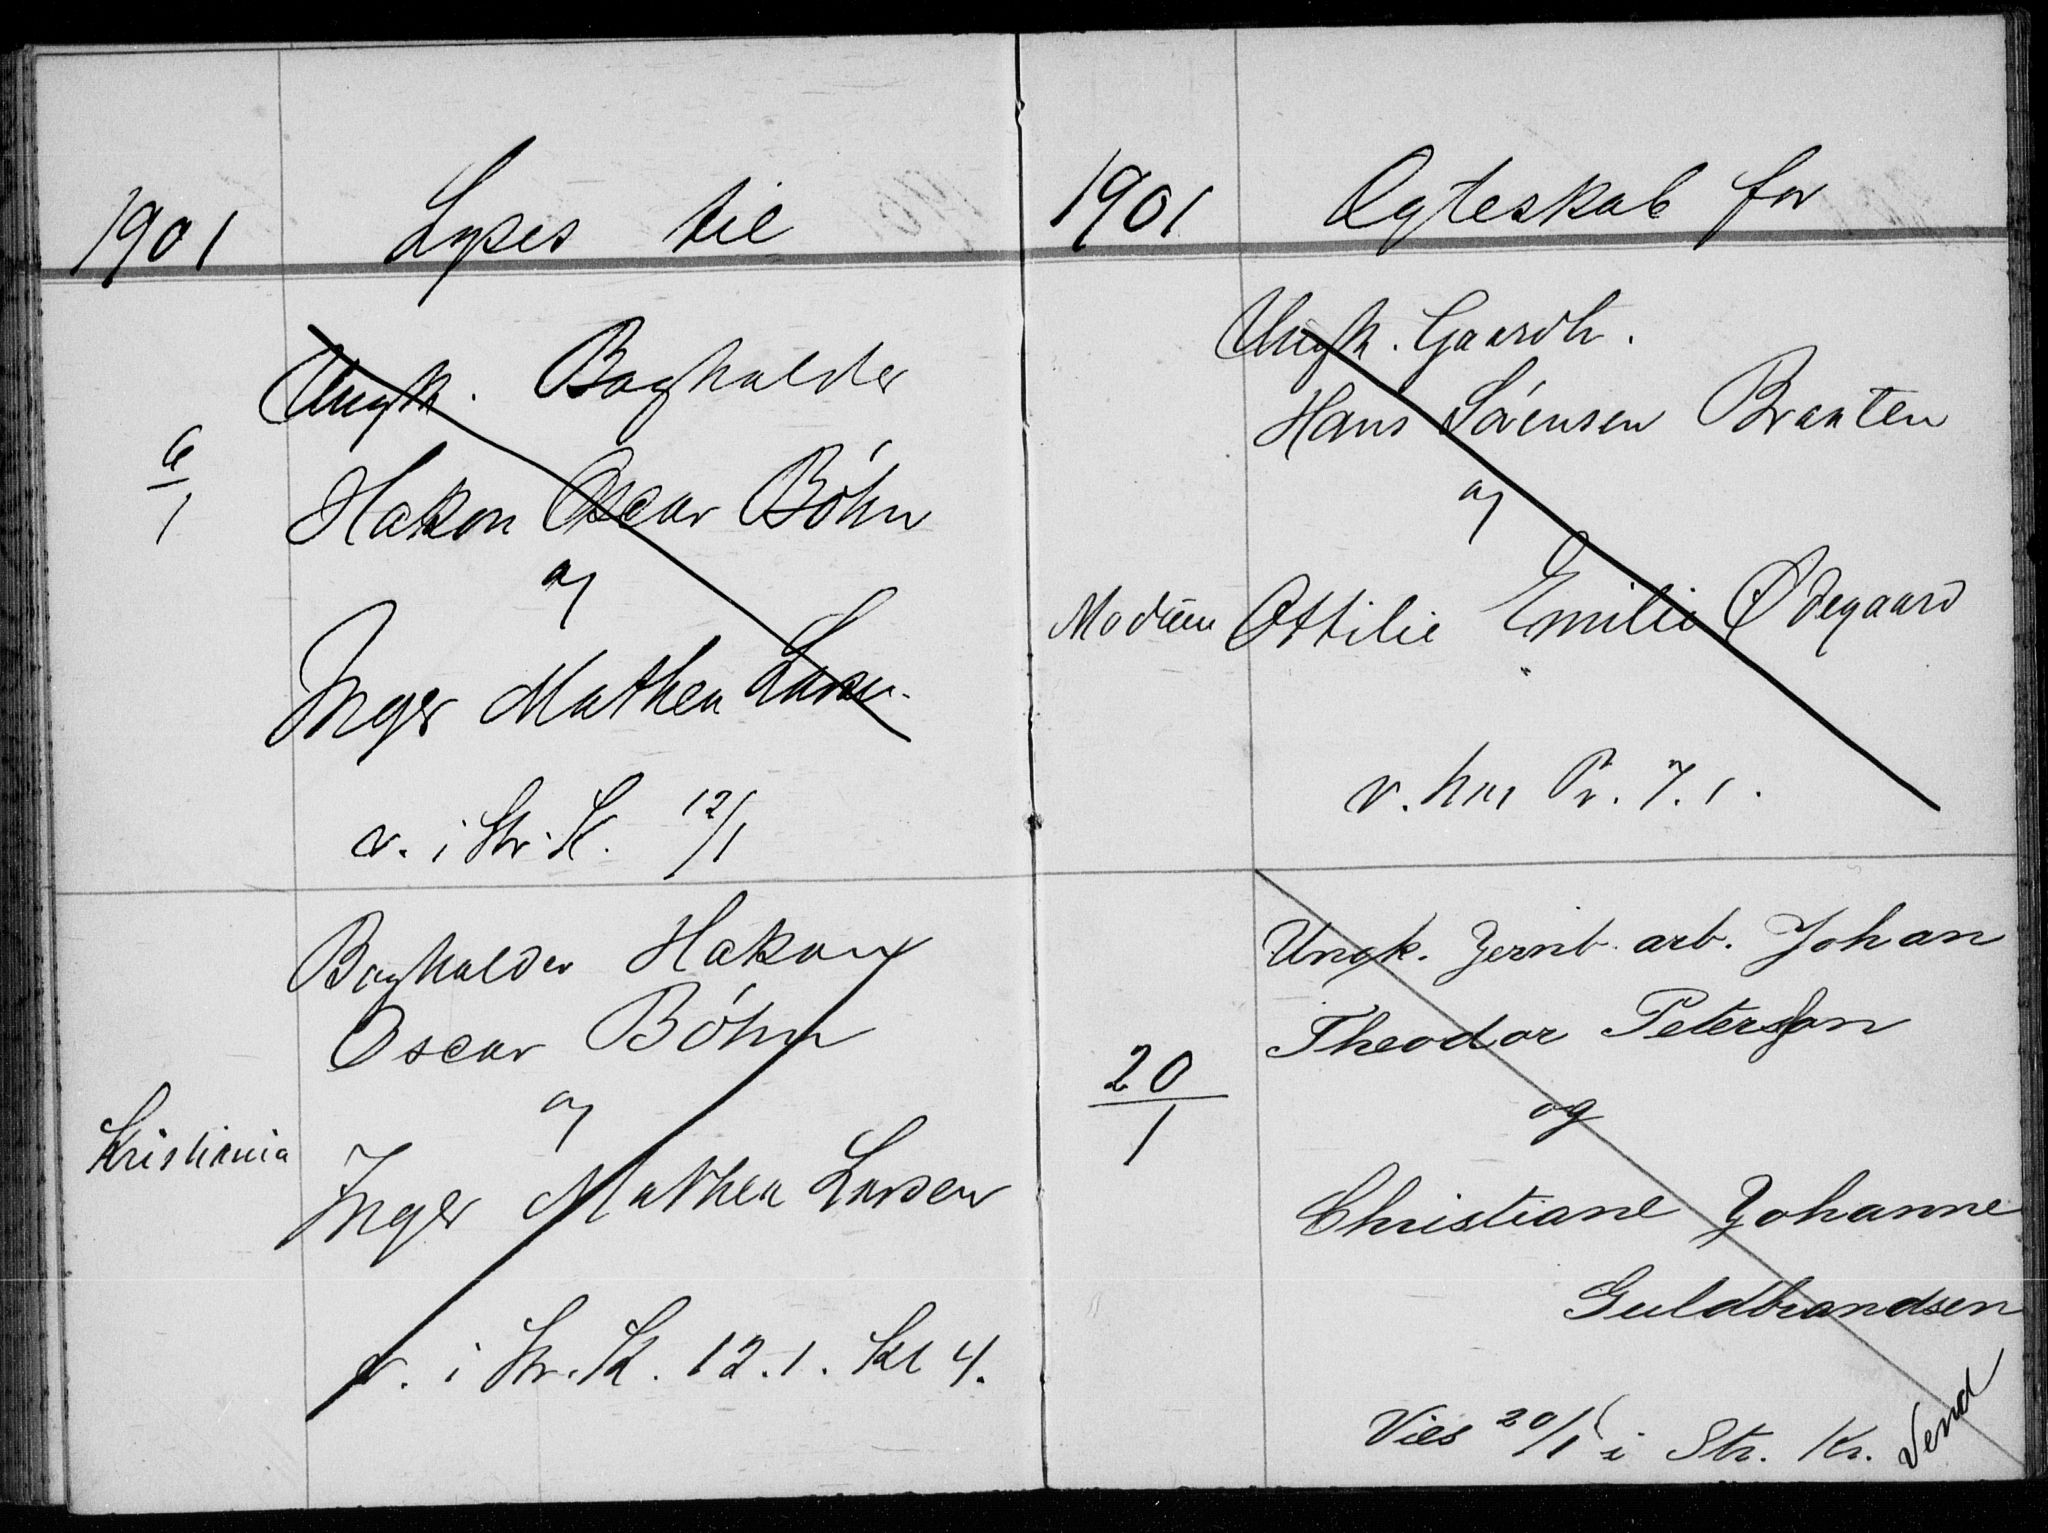 1901
Lyses til
6/1
Ungk. Bogholder
Hakon Oscar Böhn
og
Inger Mathea Larsen
v. i Str. K. 12/1
Bogholder Hakon
Oscar Böhn
og
Kristiania
Inger Mathea Larsen
v. i Str. K. 12.1. Kl 4.
1901
Ægteskab for
Ungk. Gaardb.
Hans Sörensen Braaten
og
Modum Ottilie Emilie Ødegaard
v. hos Pr. 7.1.
20/1
Ungk. Jernb. arb. Johan
Theodor Petersson
og
Christiane Johanne
Guldbrandsen
Vies 20/1 i Str. Kr.
Vend